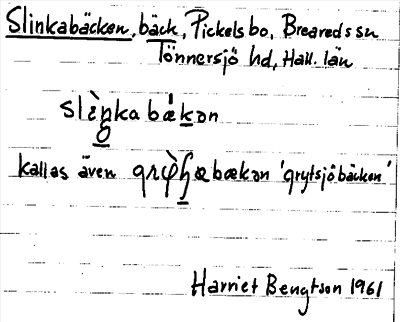 Slinkabäcken, bäck, Pickelsbo, Breareds sn
Tönnersjö hd, Hall. län
kallas även 'grytsjöbäcken'
Harriet Bengtson 1961